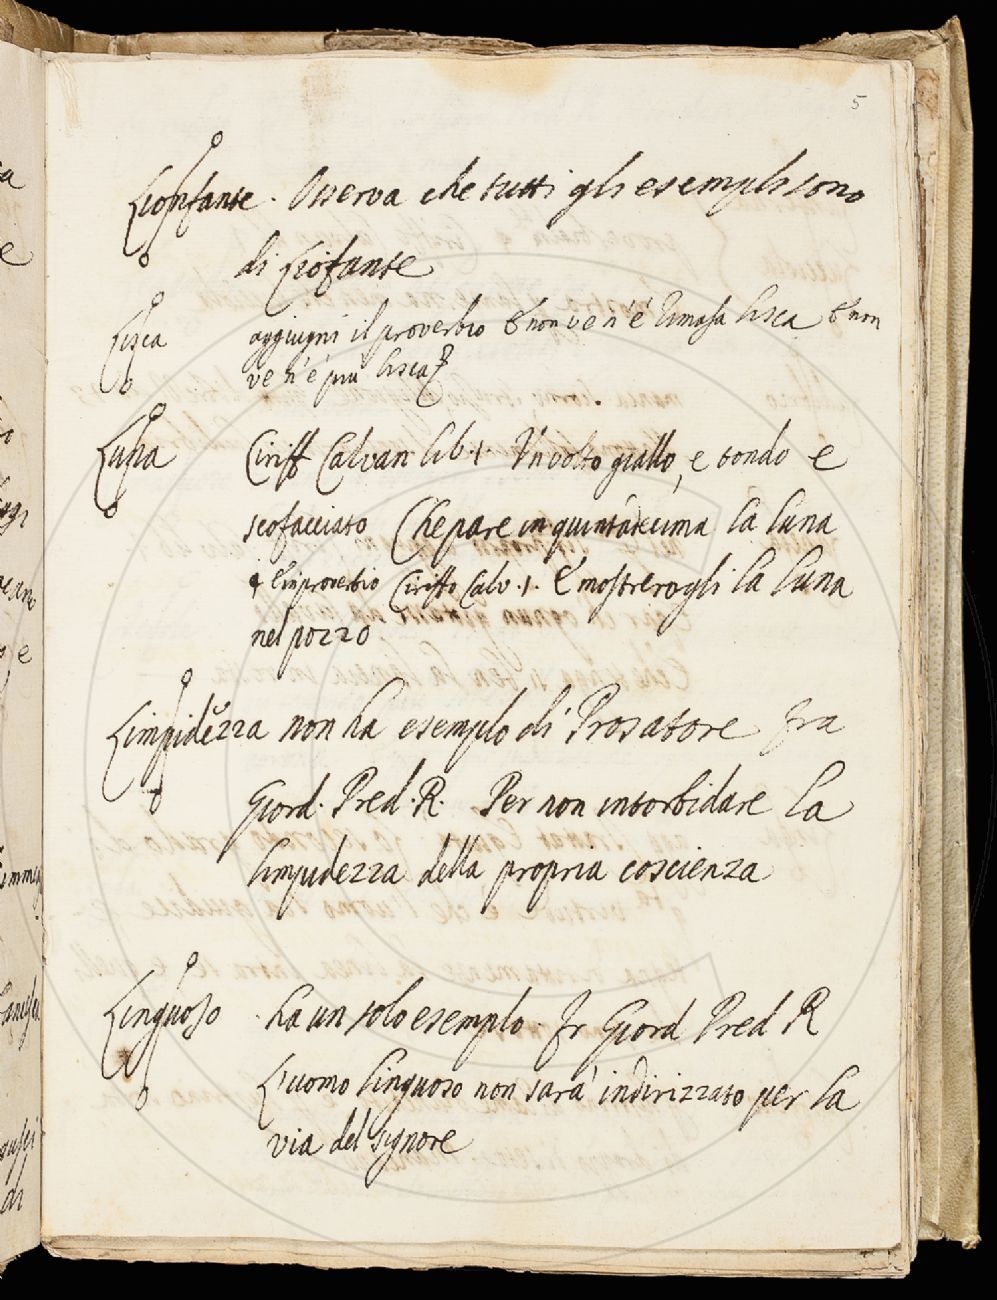 5
Lionfante. Osserva che tutti gli esempli sono
di Liofante
Lisca aggiugni il proverbio E non ve n'è rimasa lisca E non
ve n'è più lisca
Luna Ciriff Calvan lib. 1. Un volto giallo, e tondo e
scofacciato Che pare in quintadecima la luna
E in proverbio Ciriffo Calv. 1. E mostrerogli la luna
nel pozzo
Limpidezza non ha esemplo di Prosatore fra
Giord. Pred. R. Per non intorbidare la
limpidezza della propria coscienza
Linguoso ha un solo esemplo Fr Giord Pred R
L'uomo linguoso non sarà indirizzato per la
via del signore